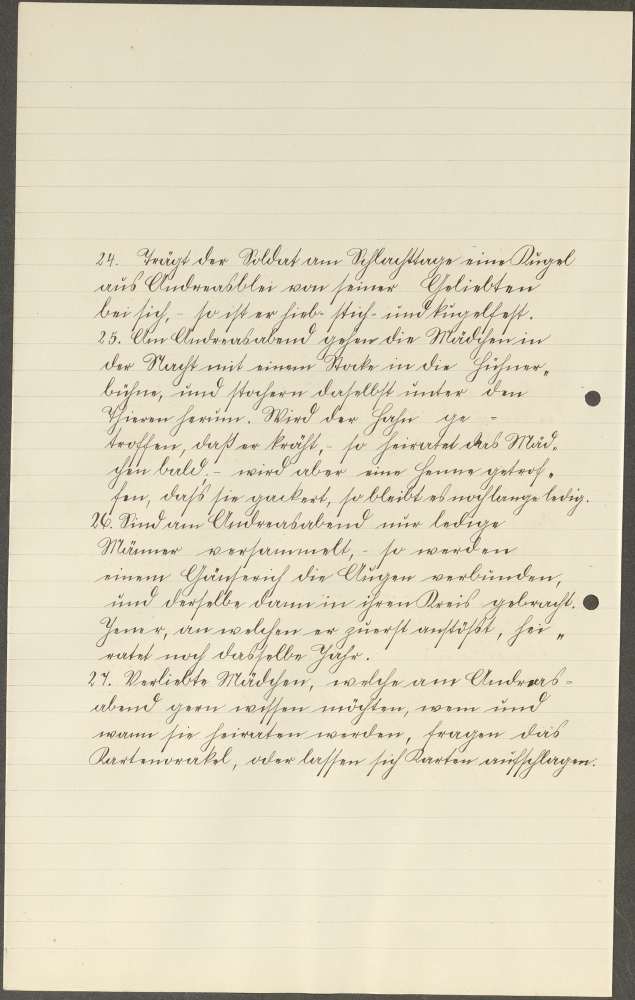 24. Trägt der Soldat am Schlachttage eine Kugel
aus Andreasblei von seiner Geliebten
bei sich, - so ist er hieb- stich- und kugelfest.
25. Am Andreasabend gehen die Mädchen in
der Nacht mit einem Stocke in die Hühner„
bühne, und stochern daselbst unter den
Thieren herum. Wird der Hahn ge =
troffen, daß er kräht, - so heiratet das Mäd„
chen bald, - wird aber eine Henne getrof„
fen, daß sie gackert, so bleibt es noch lange ledig.
26. Sind am Andreasabend nur ledige
Männer versammelt, - so werden
einem Gänserich die Augen verbunden,
und derselbe dann in ihren Kreis gebracht.
Jener, an welchen er zuerst anstößt, hei„
ratet noch dasselbe Jahr.
27. Verliebte Mädchen, welche am Andreas=
abend gern wissen möchten, wem und
wann sie heiraten werden, fragen das
Kartenorakel, oder lassen sich Karten aufschlagen.